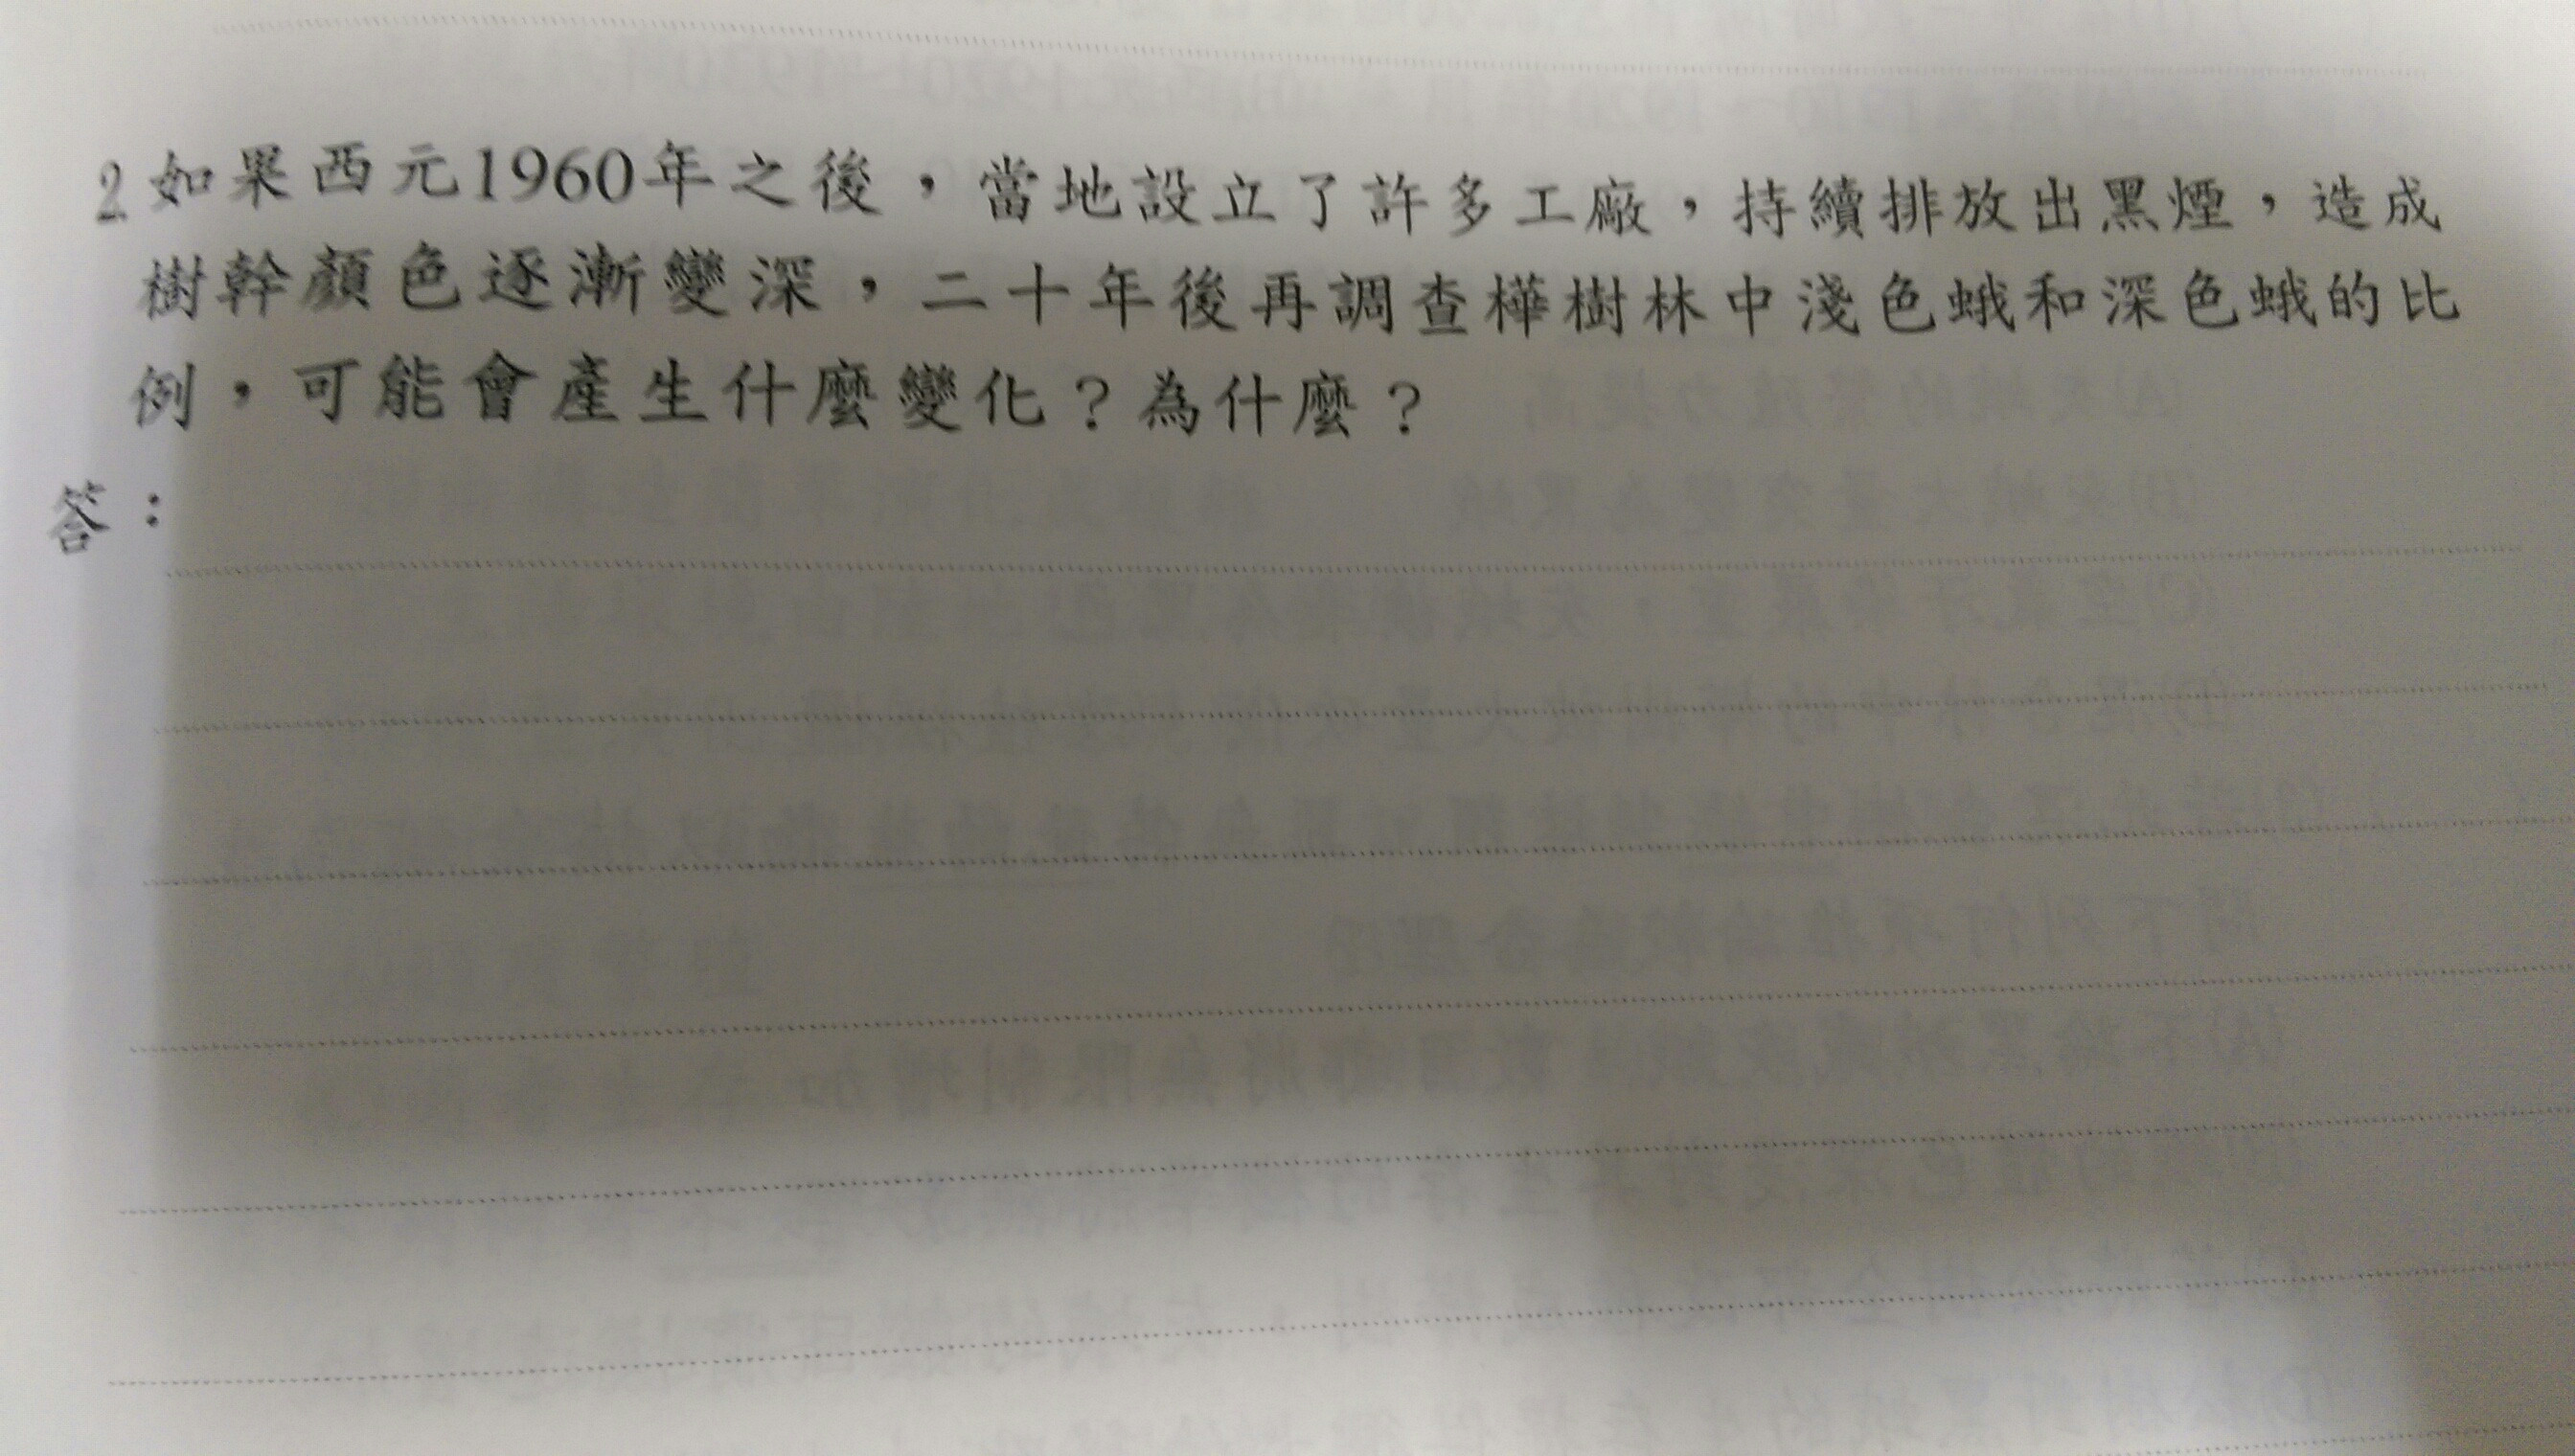 2.如果西元1960年之後，當地設立了許多工廠，持續排放出黑煙，造成
樹幹顏色逐漸變深，二十年後再調查樺樹林中淺色蛾和深色蛾的比
例，可能會產生什麼變化？為什麼？
答：